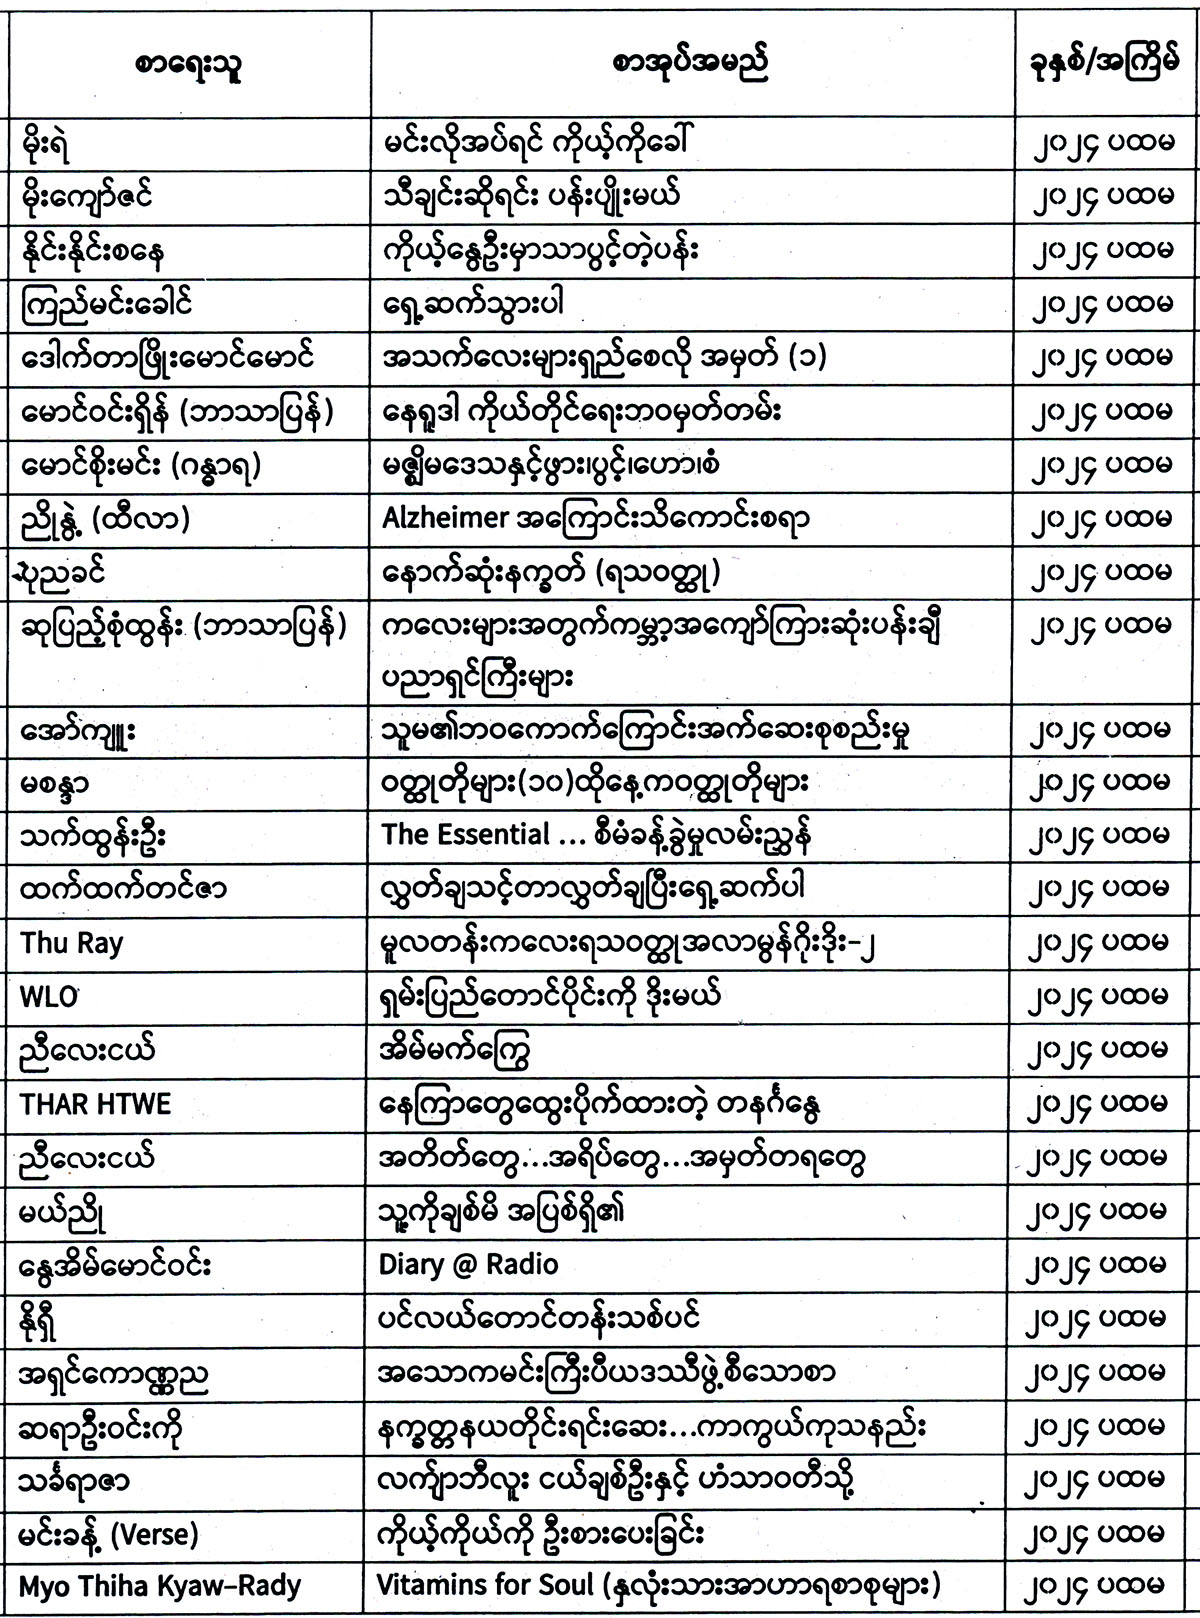 စာရေးသူ စာအုပ်အမည် ခုနှစ်/အကြိမ်
မိုးရဲ မင်းလိုအပ်ရင် ကိုယ့်ကိုခေါ် ၂၀၂၄ ပထမ
မိုးကျော်ဇင် သီချင်းဆိုရင်း ပန်းပျိုးမယ် ၂၀၂၄ ပထမ
နိုင်းနိုင်းစနေ ကိုယ့်နွေဦးမှာသာပွင့်တဲ့ပန်း ၂၀၂၄ ပထမ
ကြည်မင်းခေါင် ရှေ့ဆက်သွားပါ ၂၀၂၄ ပထမ
ဒေါက်တာဖြိုးမောင်မောင် အသက်လေးများရှည်စေလို အမှတ် (၁) ၂၀၂၄ ပထမ
မောင်ဝင်းရှိန် (ဘာသာပြန်) နေရူဒါ ကိုယ်တိုင်ရေးဘဝမှတ်တမ်း ၂၀၂၄ ပထမ
မောင်စိုးမင်း (ဂန္ဓာရ) မဇ္ဈိမဒေသနှင့်ဖွား၊ပွင့်၊ဟော၊စံ ၂၀၂၄ ပထမ
ညိုနွဲ့ (ထီလာ) Alzheimer အကြောင်းသိကောင်းစရာ ၂၀၂၄ ပထမ
ပုညခင် နောက်ဆုံးနက္ခတ် (ရသဝတ္ထု) ၂၀၂၄ ပထမ
ဆုပြည့်စုံထွန်း (ဘာသာပြန်) ကလေးများအတွက်ကမ္ဘာ့အကျော်ကြားဆုံးပန်းချီ ၂၀၂၄ ပထမ
ပညာရှင်ကြီးများ
အော်ကျူး သူမ၏ဘဝကောက်ကြောင်းအက်ဆေးစုစည်းမှု ၂၀၂၄ ပထမ
မစန္ဒာ ဝတ္ထုတိုများ(၁၀)ထိုနေ့ကဝတ္ထုတိုများ ၂၀၂၄ ပထမ
သက်ထွန်းဦး The Essential ... စီမံခန့်ခွဲမှုလမ်းညွှန် ၂၀၂၄ ပထမ
ထက်ထက်တင်ဇာ လွှတ်ချသင့်တာလွှတ်ချပြီးရှေ့ဆက်ပါ ၂၀၂၄ ပထမ
Thu Ray မူလတန်းကလေးရသဝတ္ထုအလာမွန်ဂိုးဒိုး-၂ ၂၀၂၄ ပထမ
WLO ရှမ်းပြည်တောင်ပိုင်းကို ဒိုးမယ် ၂၀၂၄ ပထမ
ညီလေးငယ် အိမ်မက်ကြွေ ၂၀၂၄ ပထမ
THAR HTWE နေကြာတွေထွေးပိုက်ထားတဲ့ တနင်္ဂနွေ ၂၀၂၄ ပထမ
ညီလေးငယ် အတိတ်တွေ...အရိပ်တွေ...အမှတ်တရတွေ ၂၀၂၄ ပထမ
မယ်ညို သူ့ကိုချစ်မိ အပြစ်ရှိ၏ ၂၀၂၄ ပထမ
နွေအိမ်မောင်ဝင်း Diary @ Radio ၂၀၂၄ ပထမ
နိုရှီ ပင်လယ်တောင်တန်းသစ်ပင် ၂၀၂၄ ပထမ
အရှင်ကောဏ္ဍည အသောကမင်းကြီးပီယဒဿီဖွဲ့စီသောစာ ၂၀၂၄ ပထမ
ဆရာဦးဝင်းကို နက္ခတ္တနယတိုင်းရင်းဆေး...ကာကွယ်ကုသနည်း ၂၀၂၄ ပထမ
သင်္ခရာဇာ လက်ျာဘီလူး ငယ်ချစ်ဦးနှင့် ဟံသာဝတီသို့ ၂၀၂၄ ပထမ
မင်းခန့် (Verse) ကိုယ့်ကိုယ်ကို ဦးစားပေးခြင်း ၂၀၂၄ ပထမ
Myo Thiha Kyaw-Rady Vitamins for Soul (နှလုံးသားအာဟာရစာစုများ) ၂၀၂၄ ပထမ